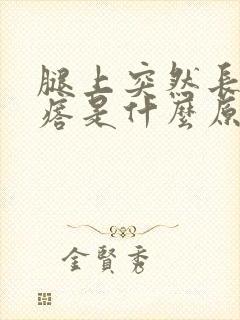 腿上突然長
痦是什麼原
金賢秀